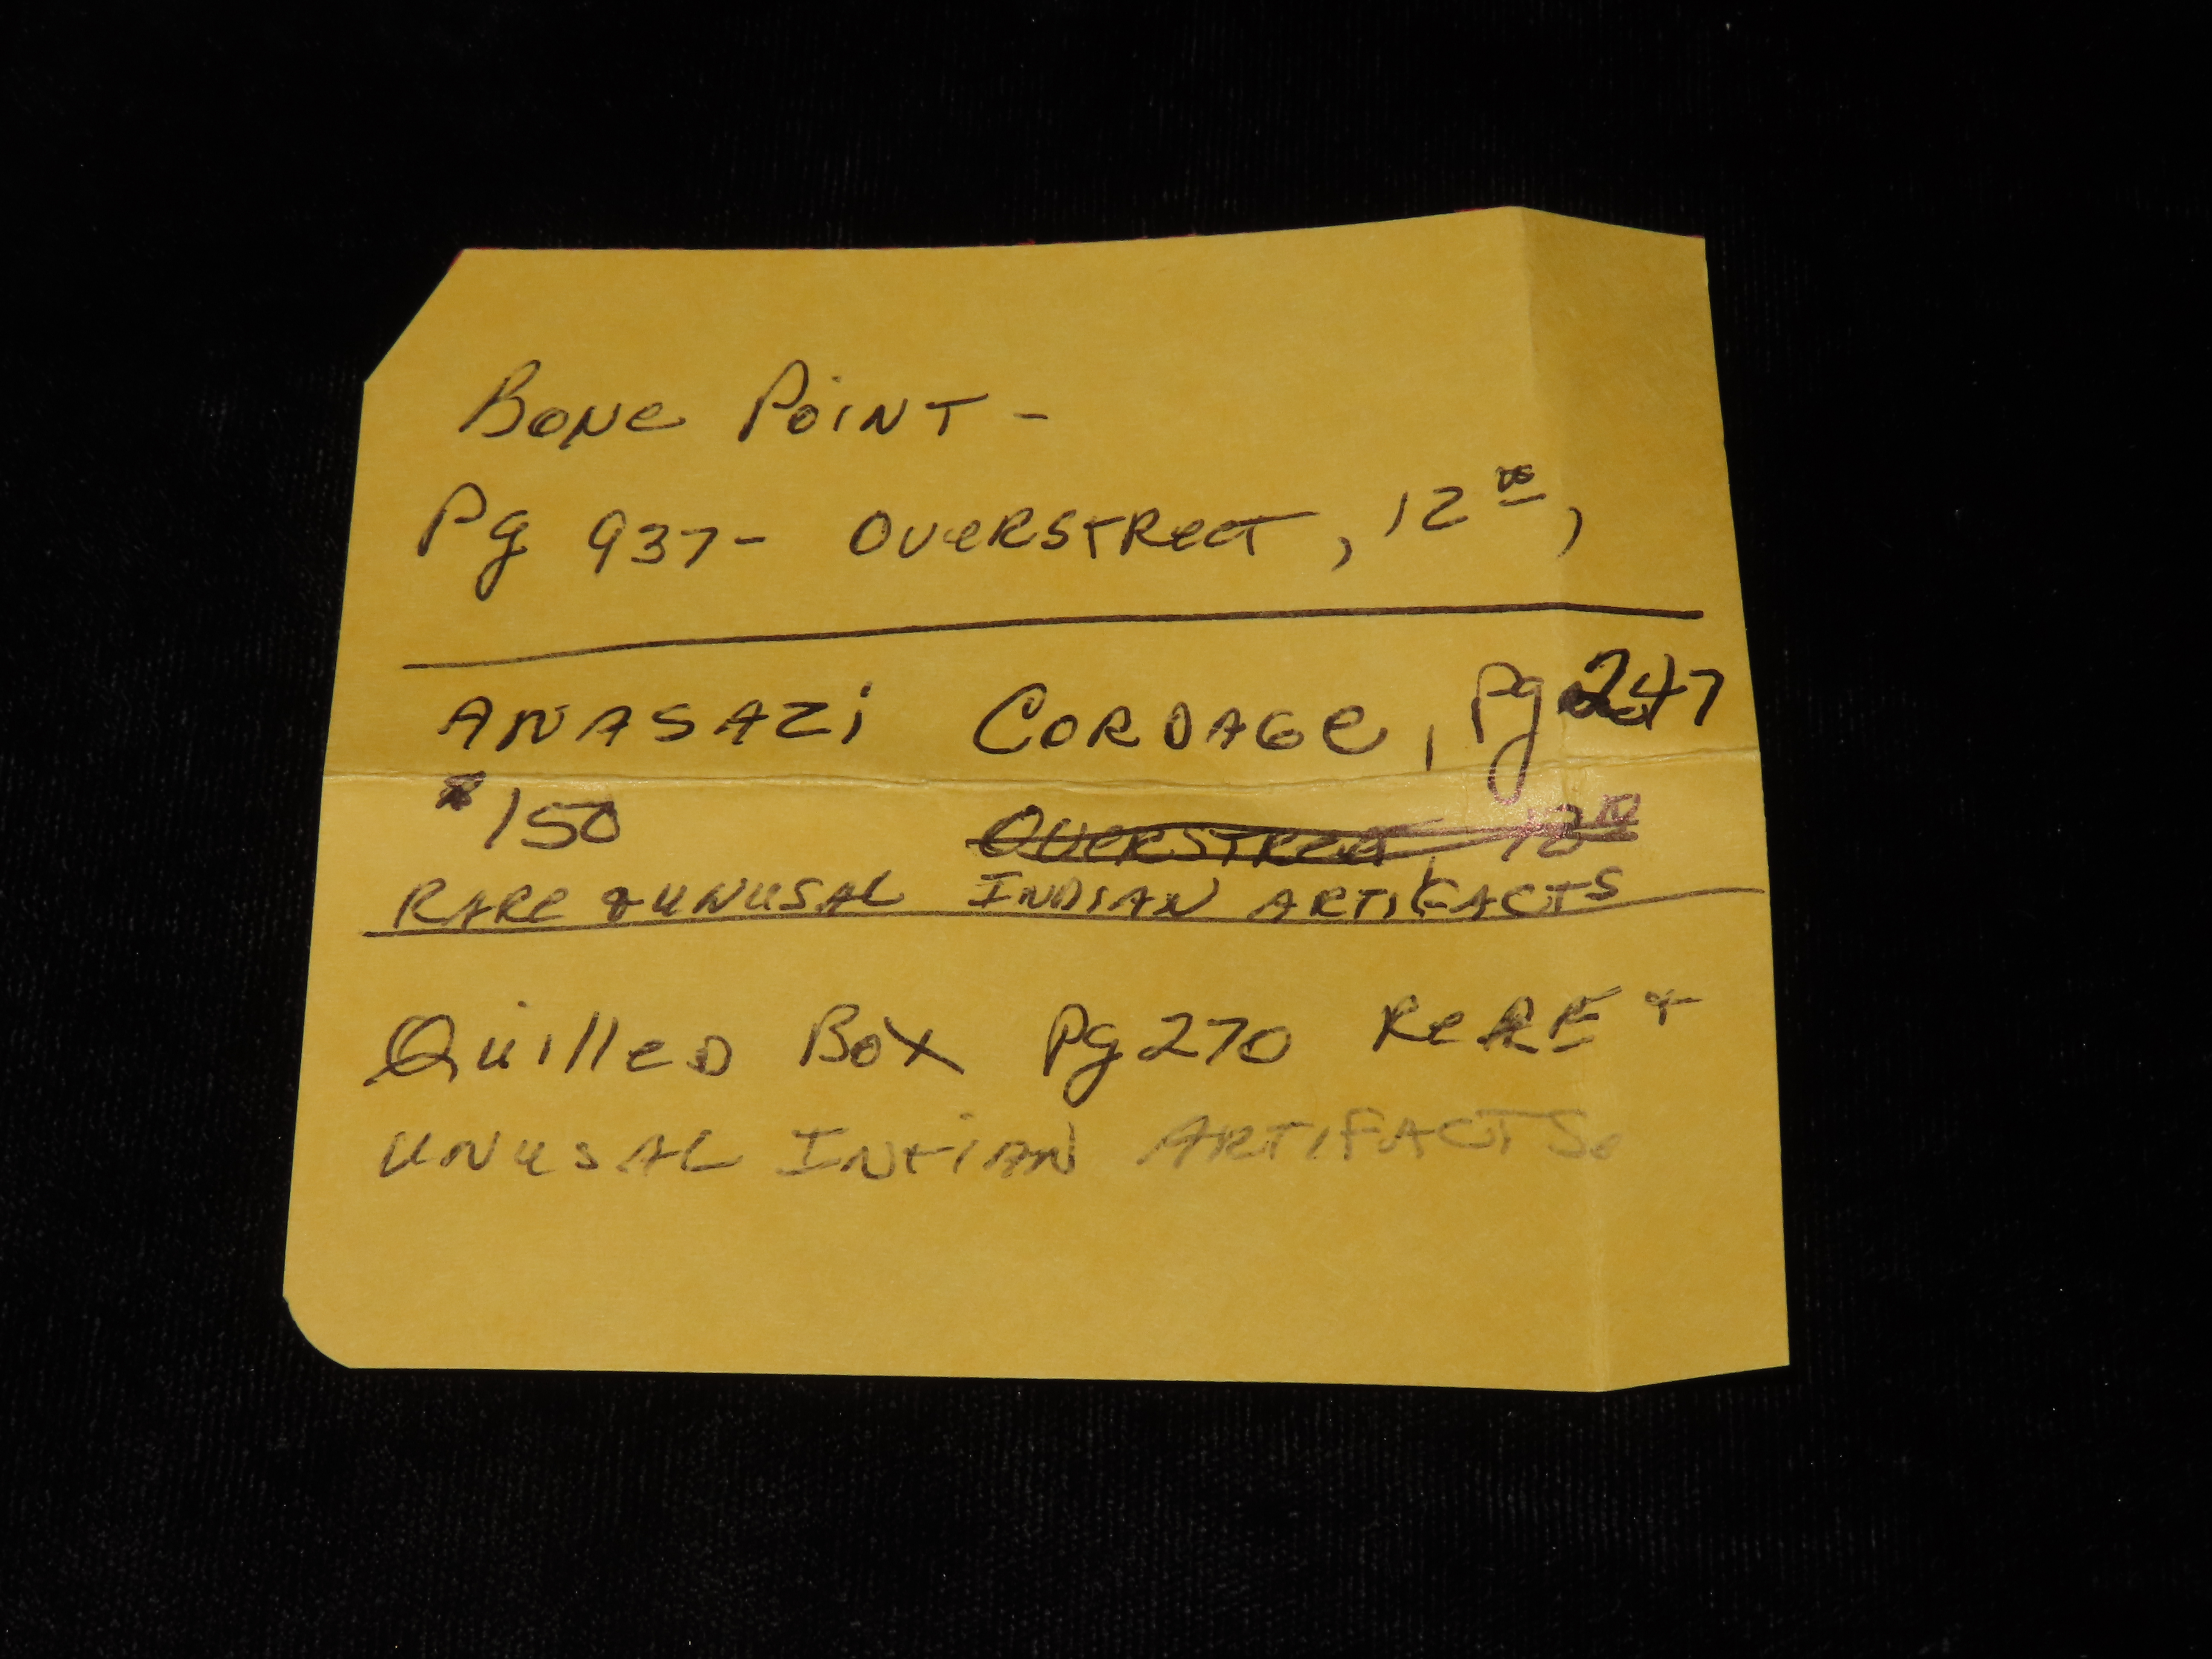 Bone Point -
Pg 937- Overstreet, 12
Anasazi Cordage, Pg 247
$150 Overstreet, 
Rare & Unusal Indian Artifacts
Quilled Box Pg 270 ReRE +
Unusal Intian Artifacts.